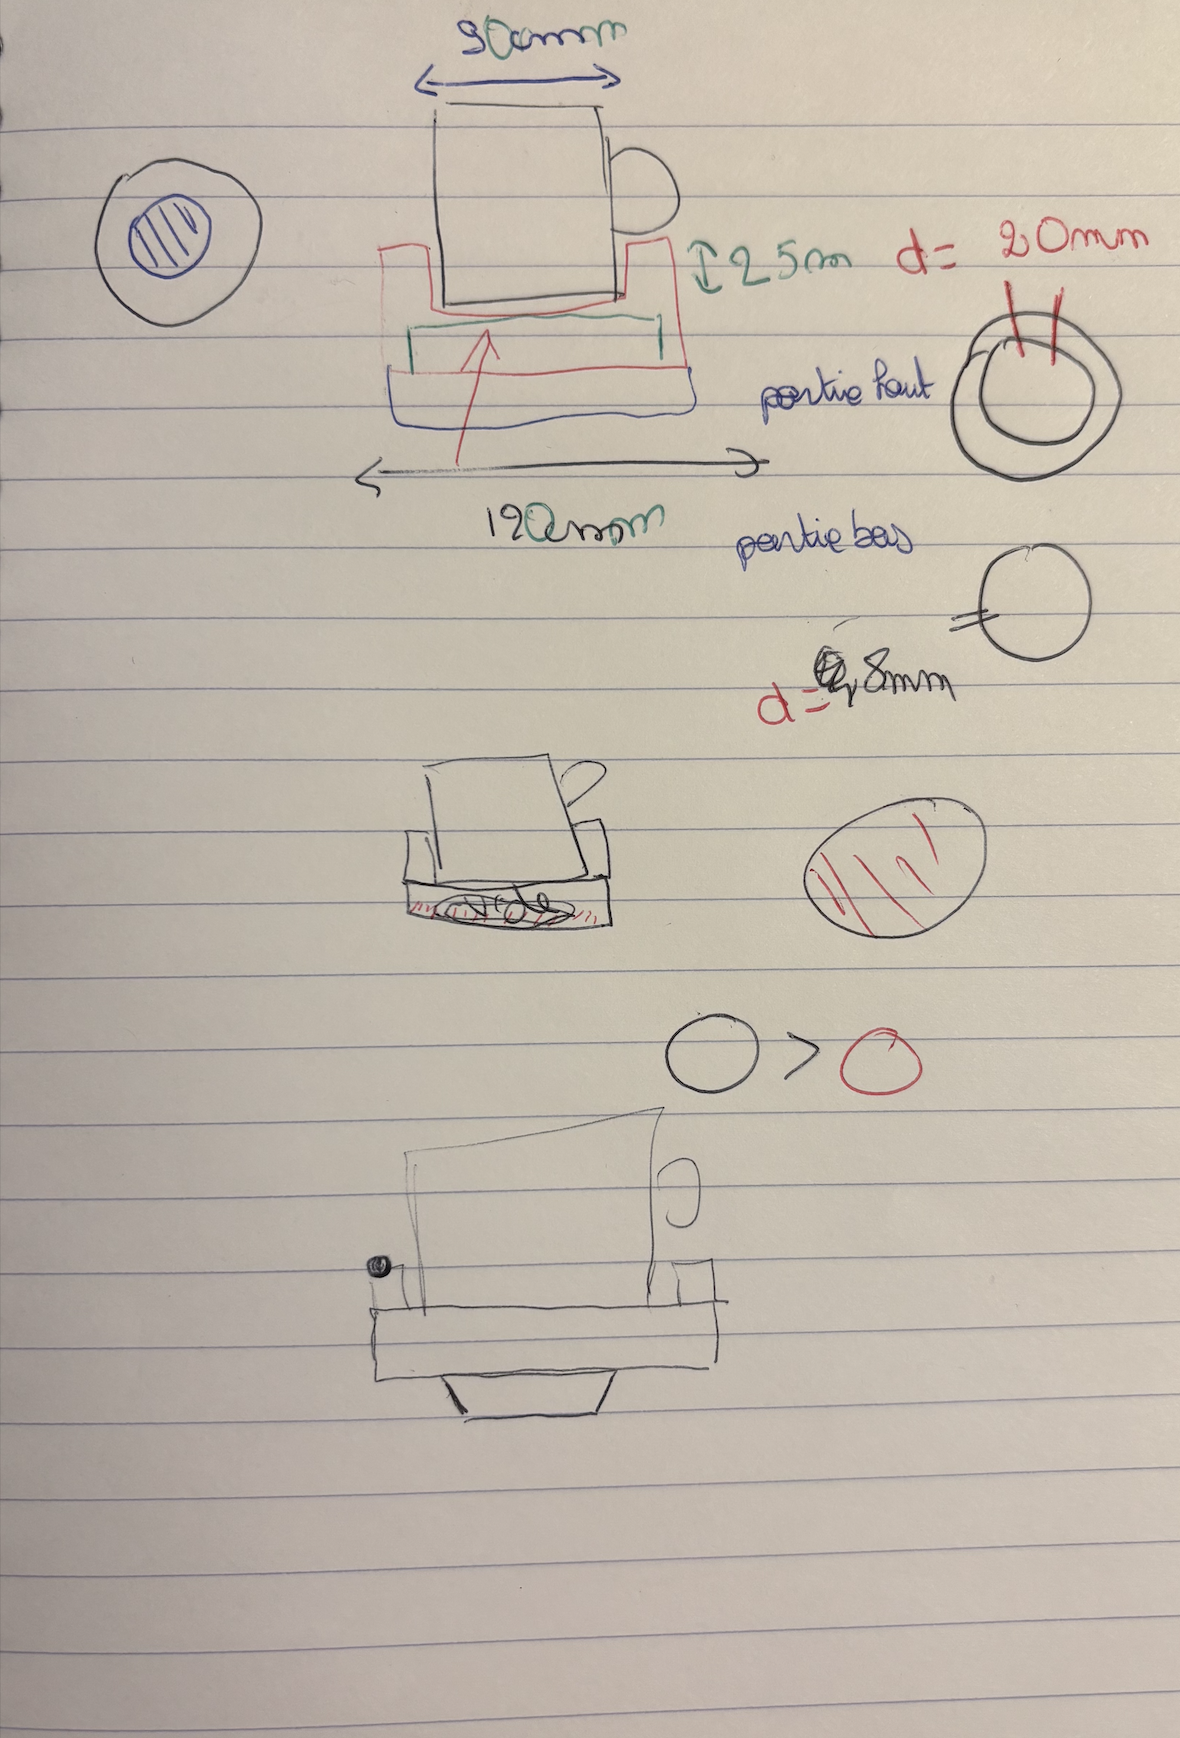 90mm
25m
d= 20mm
partie haut
120mm
partie bas
d=0,8mm
vide
>